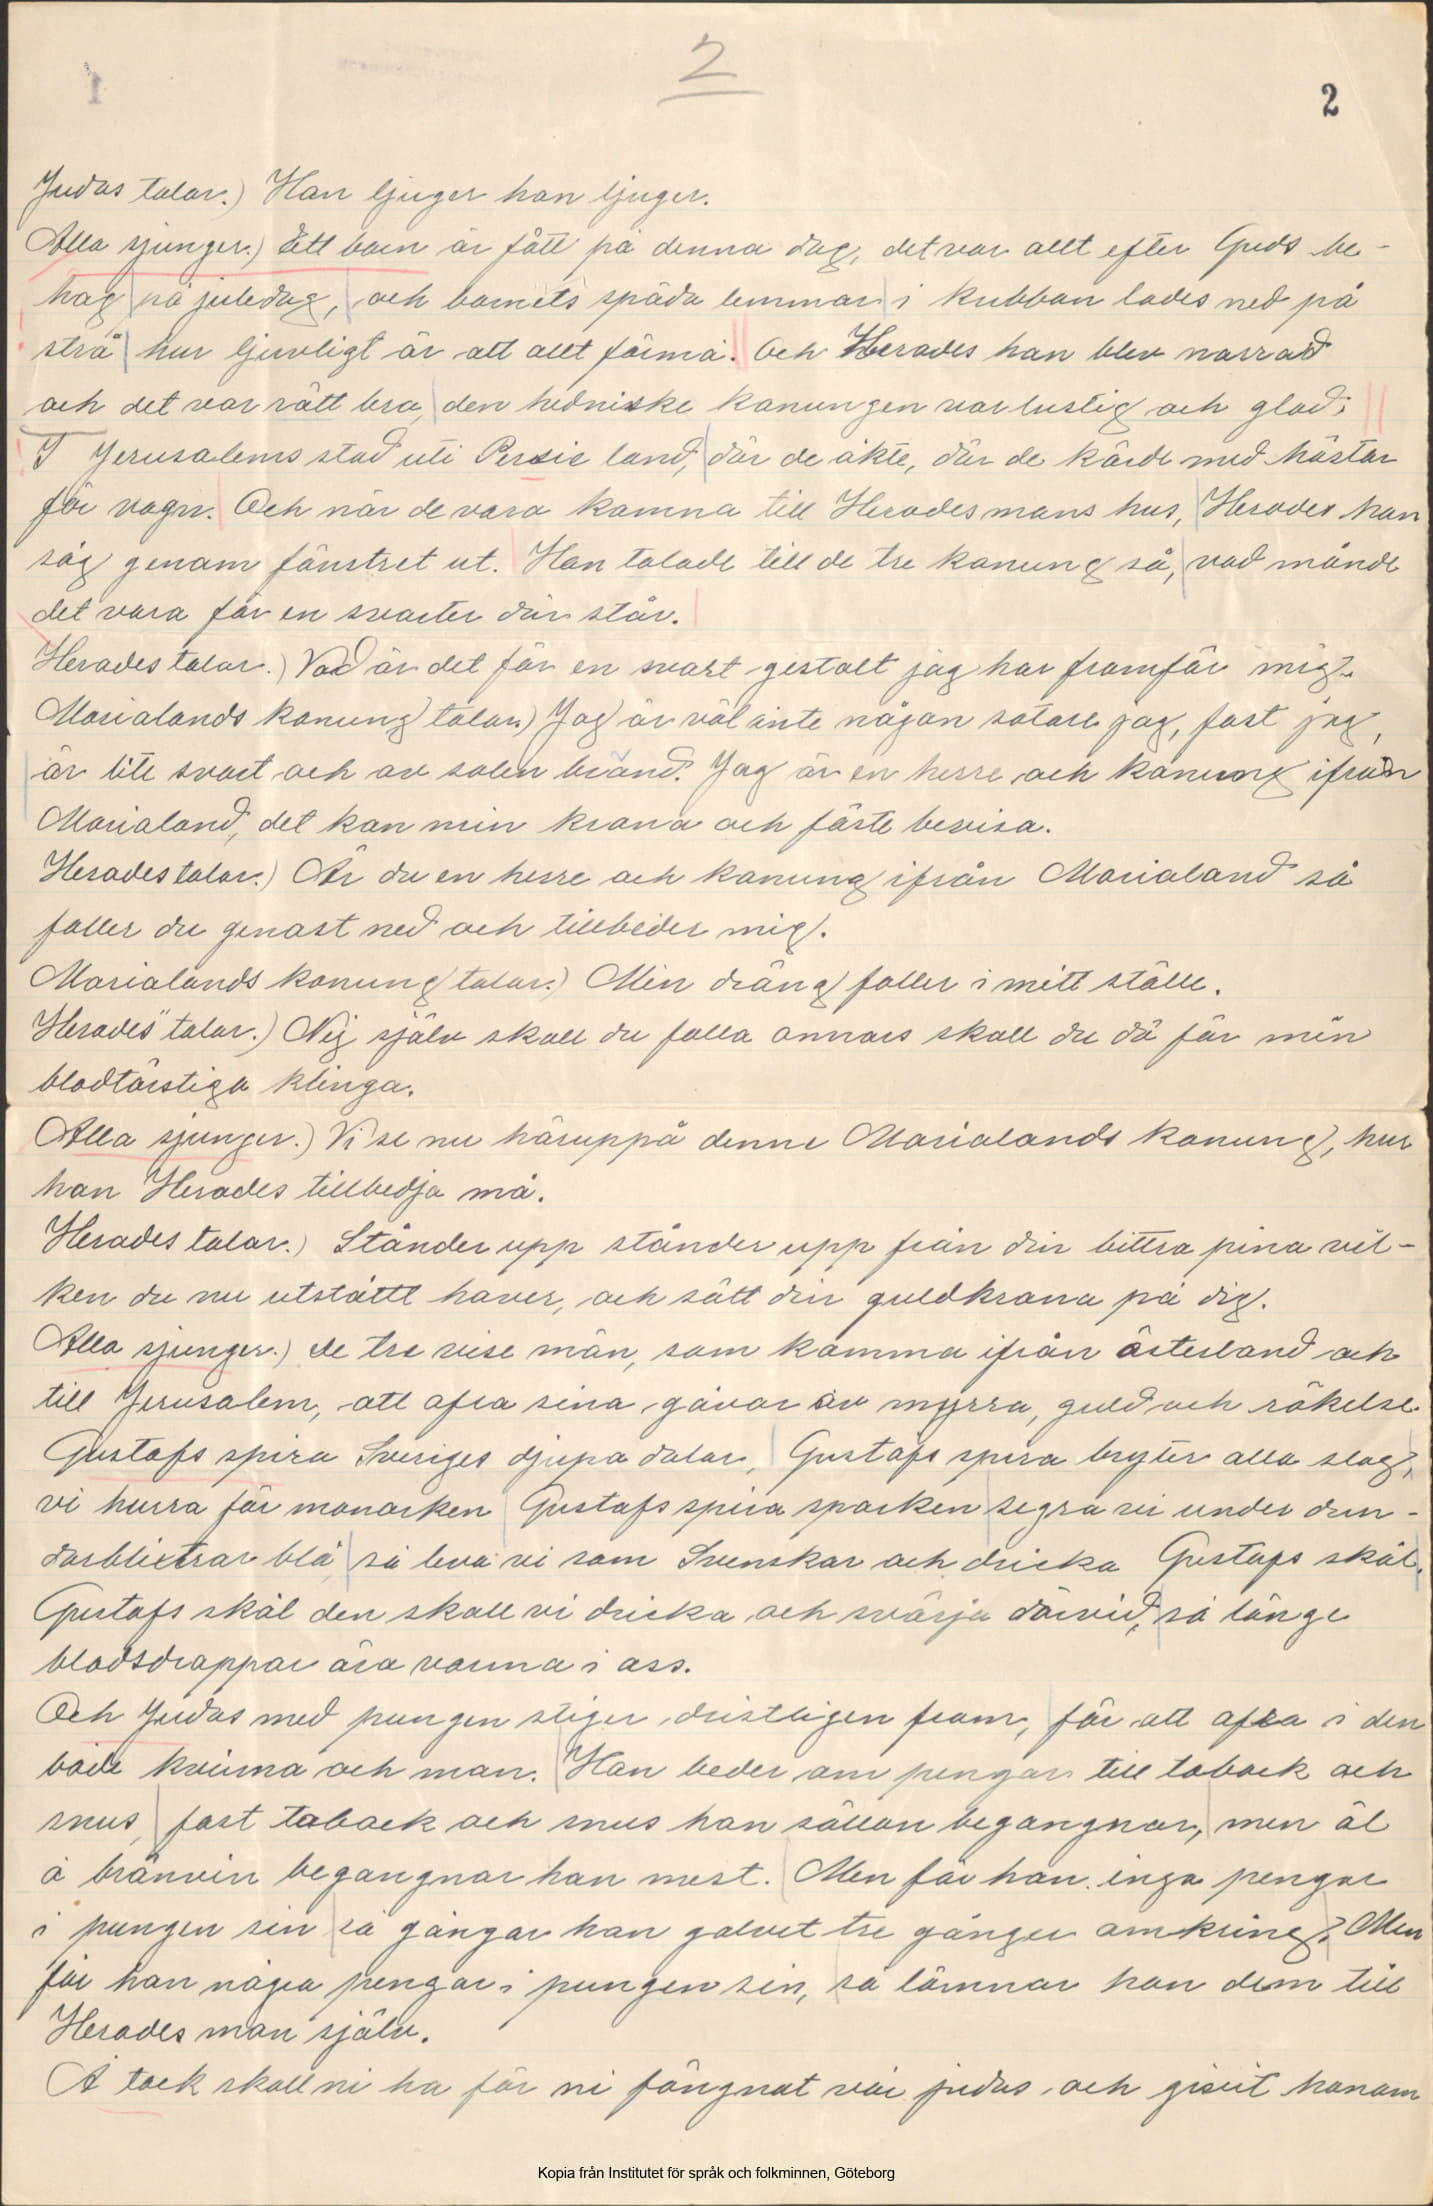 2
2
Judas talar.) Han ljuger han ljuger.
Alla sjunger.) Ett barn är fått på denna dag, det var allt efter Guds be-
hag på juledag, och barnets späda lemmar i krubban lades ned på
strå hur ljuvligt är att allt förmå. Och Herodes han blev narrad
och det var rätt bra, den hedniske konungen var lustig och glad;
I Jerusalems stad uti Persie land, där de åkte, där de körde med hästar
för vagn. Och när de voro komna till Herodes mans hus, Herodes han
såg genom fönstret ut. Han talade till de tre konung så, vad månde
det vara för en svarter där står.
Herodes talar.) Vad är det för en svart gestalt jag har framför mig.
Morialands konung talar.) Jag är väl inte någon sotare jag, fast jag,
är lite svart och av solen bränd. Jag är en herre och konung ifrån
Morialand, det kan min krona och fäste bevisa.
Herodes talar.) Är du en herre och konung ifrån Morialand så
faller du genast ned och tillbeder mig.
Morialands konung talar.) Min dräng faller i mitt ställe.
Herodes talar.) Nej själv skall du falla annars skall du dö för min
blodtörstiga klinga.
Alla sjunger.) Vi se nu häruppå denne Morialands konung, hur
han Herodes tillbedja må.
Herodes talar.) Stånder upp stånder upp från din bittra pina vil-
ken du nu utstått haver, och sätt din guldkrona på dig.
Alla sjunger.) de tre vise män, som komma ifrån österland och
till Jerusalem, att ofra sina gåvor av myrra, guld och rökelse
Gustafs spira Sveriges djupa dalar, Gustafs spira bryter alla slag,
vi hurra för monarken Gustafs spira sparken segra vi under dun-
darblixtrar blå så leva vi som Svenskar och dricka Gustafs skål.
Gustafs skål den skall vi dricka och svärja därvid, så länge
blodsdroppar äro varma i oss.
Och Judas med pungen stiger dristligen fram, för att ofra i den
både kvinna och man. Han beder om pengar till toback och
snus, fast toback och snus han sällan begangnar, men öl
å bränvin begangnar han mest. Men får han inga pengar
i pungen sin så gångar han golvet tre gånger omkring. Men
får han några pengar i pungen sin, så lämnar han dem till
Herodes man själv.
Å tack skall ni ha för ni fängnat vår judas och givit honom
Kopia från Institutet för språk och folkminnen, Göteborg